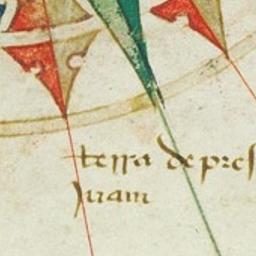 terra de pres
Juam